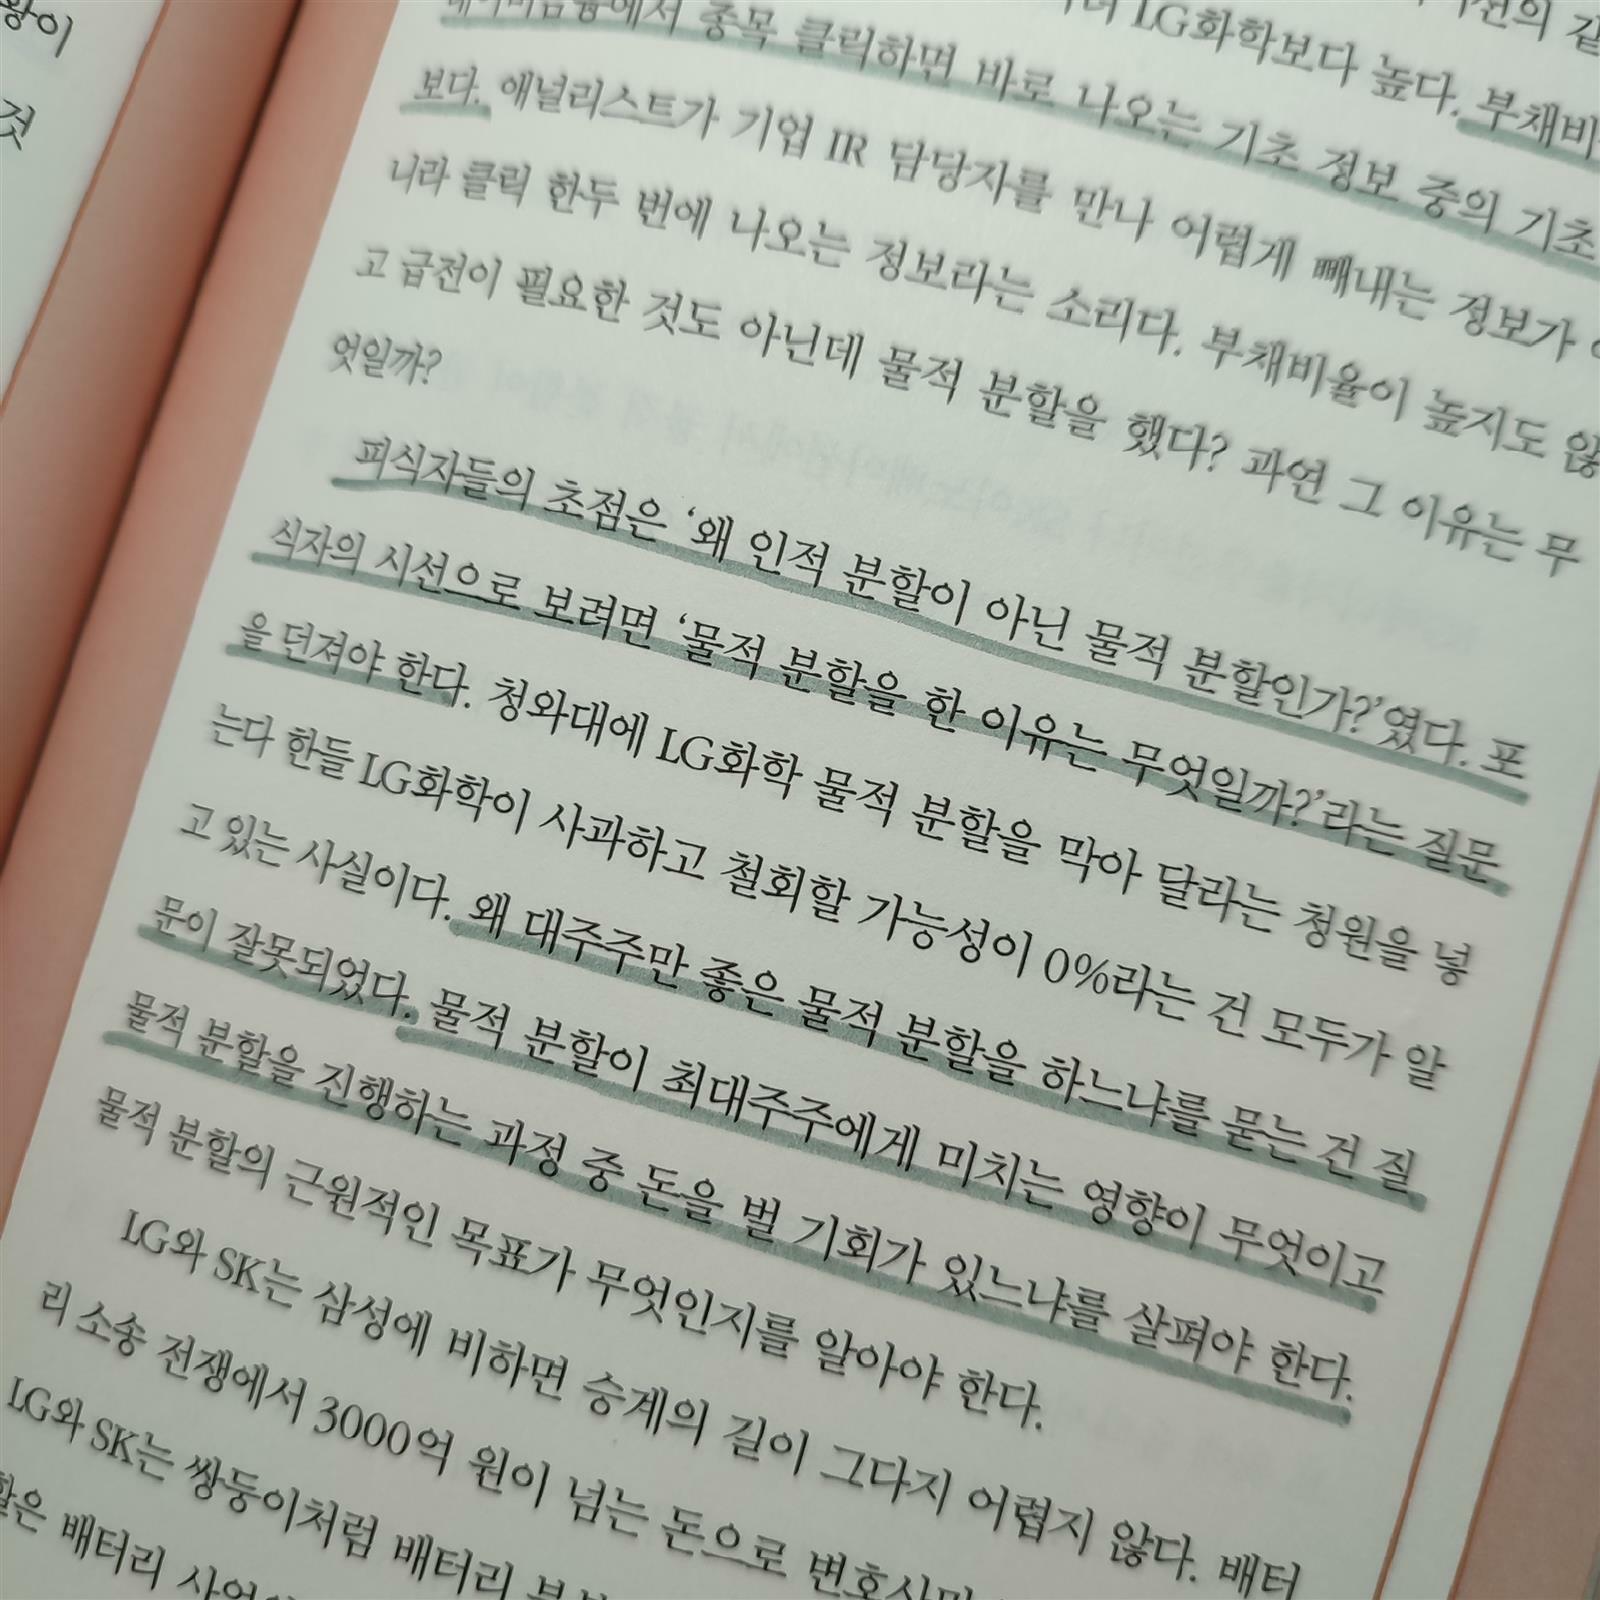 왕이
것
LG화학보다 높다. 부채비
에서 종목 클릭하면 바로 나오는 기초 정보 중의 기초
보다. 애널리스트가 기업 IR 담당자를 만나 어렵게 빼내는 정보가
니라 클릭 한두 번에 나오는 정보라는 소리다. 부채비율이 높지도 않
고 급전이 필요한 것도 아닌데 물적 분할을 했다? 과연 그 이유는 무
엇일까?
피식자들의 초점은 ‘왜 인적 분할이 아닌 물적 분할인가?’였다. 포
식자의 시선으로 보려면 ‘물적 분할을 한 이유는 무엇일까?’라는 질문
을 던져야 한다. 청와대에 LG화학 물적 분할을 막아 달라는 청원을 넣
는다 한들 LG화학이 사과하고 철회할 가능성이 0%라는 건 모두가 알
고 있는 사실이다. 왜 대주주만 좋은 물적 분할을 하느냐를 묻는 건 질
문이 잘못되었다. 물적 분할이 최대주주에게 미치는 영향이 무엇이고
물적 분할을 진행하는 과정 중 돈을 벌 기회가 있느냐를 살펴야 한다.
물적 분할의 근원적인 목표가 무엇인지를 알아야 한다.
LG와 SK는 삼성에 비하면 승계의 길이 그다지 어렵지 않다. 배터
리 소송 전쟁에서 3000억 원이 넘는 돈으로 변호사만
LG와 SK는 쌍둥이처럼 배터리
할은 배터리